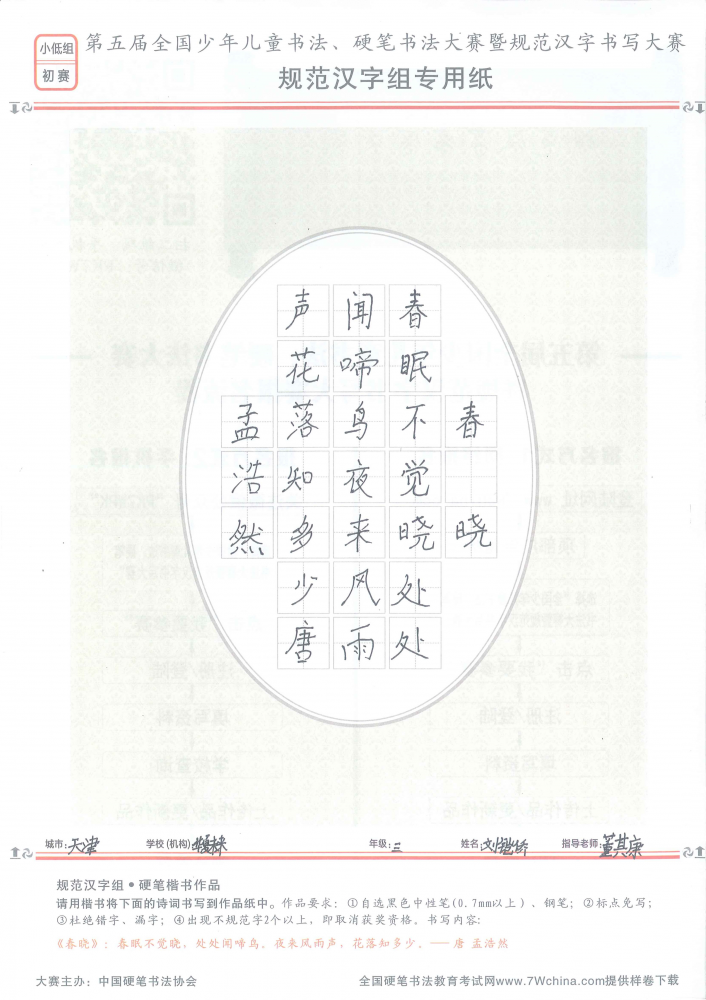 小低组
初赛
第五届全国少年儿童书法、硬笔书法大赛暨规范汉字书写大赛
规范汉字组专用纸
春晓
春眠不觉晓处处
闻啼鸟夜来风雨
声花落知多少唐
孟浩然
城市：天津
学校(机构)：
年级：三
姓名：刘
指导老师：董其康
规范汉字组•硬笔楷书作品
请用楷书将下面的诗词书写到作品纸中。作品要求：①自选黑色中性笔(0.7mm以上)、钢笔；②标点免写；
③杜绝错字、漏字；④出现不规范字2个以上，即取消获奖资格。书写内容：
《春晓》：春眠不觉晓，处处闻啼鸟。夜来风雨声，花落知多少。——唐 孟浩然
大赛主办：中国硬笔书法协会
全国硬笔书法教育考试网www.7Wchina.com提供样卷下载